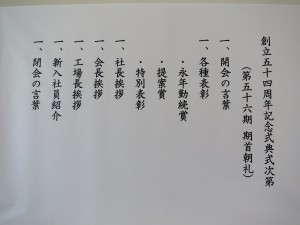 創立五十四周年記念式典式次第
（第五十六期 期首朝礼）
一、開会の言葉
一、各種表彰
・永年勤続賞
・提案賞
・特別表彰
一、社長挨拶
一、会長挨拶
一、工場長挨拶
一、新入社員紹介
一、閉会の言葉